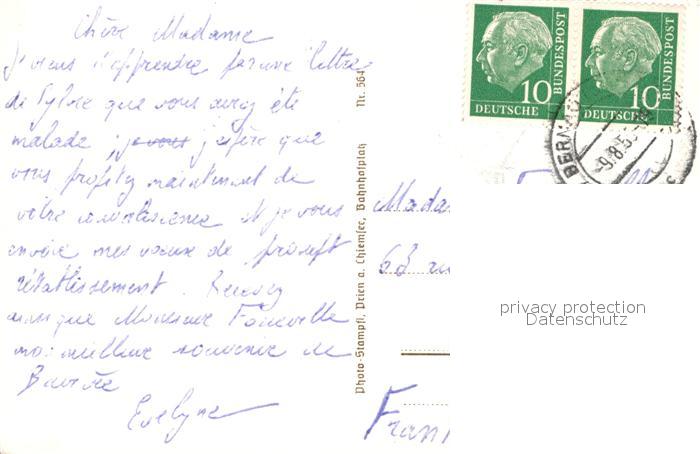 Chère Madame
j'viens d'apprendre par une lettre
de Sylvie que vous avez été
malade, je vous j'espère que
vous profitez maintenant de
votre convalescence et je vous
envoie mes vœux de prompt
rétablissement. Recevez
ainsi que Monsieur
mon meilleur souvenir de
Bavière
Evelyne
Photo-Stampfl, Prien a. Chiemsee, Bahnhofplatz Nr. 564
10
DEUTSCHE
BUNDESPOST
10
DEUTSCHE
BUNDESPOST
BERNAU
-9.8.5
Madam
63 ru
Fran
privacy protection
Datenschutz